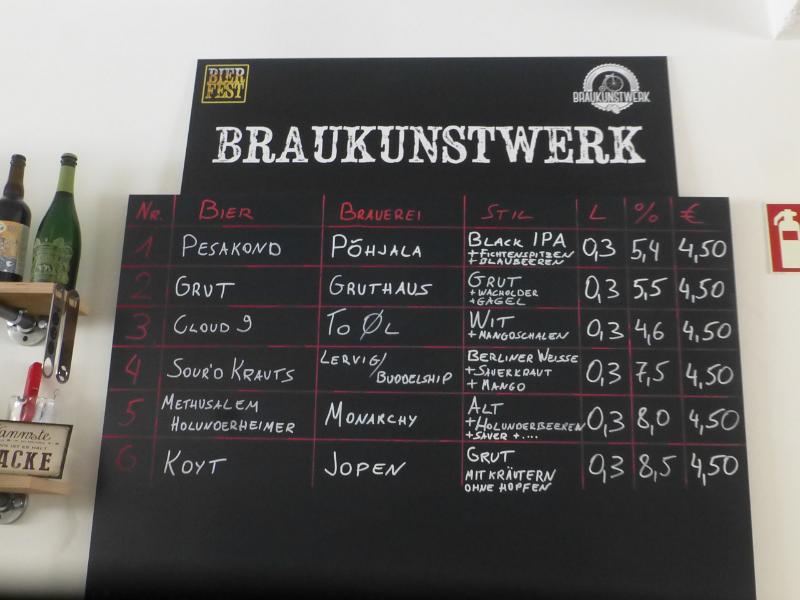 BIER FEST
BRAUKUNSTWERK
BRAUKUNSTWERK
Nr. BIER BRAUEREI STIL L % €
1 PESAKOND PÕHJALA BLACK IPA 0,3 5,4 4,50
+ FICHTENSPITZEN
+ BLAUBEEREN
2 GRUT GRUTHAUS GRUT 0,3 5,5 4,50
+ WACHOLDER
+ GAGEL
3 CLOUD 9 TO ØL WIT 0,3 4,6 4,50
+ MANGOSCHALEN
4 SOUR'D KRAUTS LERVIG/ BUDDELSHIP BERLINER WEISSE 0,3 7,5 4,50
+ SAUERKRAUT
+ MANGO
5 METHUSALEM HOLUNDERHEIMER MONARCHY ALT 0,3 8,0 4,50
+ HOLUNDERBEEREN
+ SAUER + ....
6 KOYT JOPEN GRUT 0,3 8,5 4,50
MIT KRÄUTERN
OHNE HOPFEN